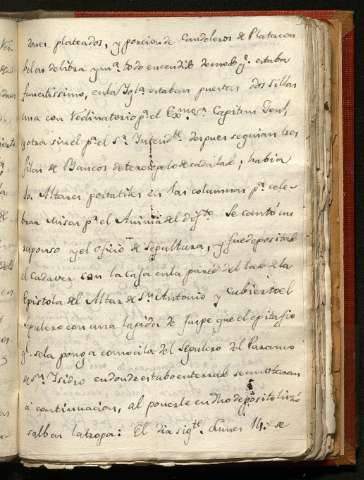 plateados, y porcion de Candeleros de Plata con
velas de libra y m.ª todo encendido de modo q.e estaba
funeralissimo, en la Yg.ª estaban puestas dos sillas
una con reclinatorio p.ª el Ex.mo S.r Capitan Gen.l
y otra sin el p.ª el S.r Intend.te despues seguian tres
filas de Bancos de terciopelo de calidad, habia
Altares portatiles en las columnas p.ª cele-
brar Misas p.r el Anima del dif.to Se cantó un
responso y el oficio de sepultura, y fue deposit.do
el cadaver con la caxa en la pared del lado de la
Epistola del Altar de S.n Antonio y cubierto el
sepulcro con una lapida de Jaspe que el epitafio
q.e se le ponga como cita del sepulcro del Paramo
de S.n Isidro en donde estubo enterrado se anotaran
a continuacion, al ponerle en dho deposito hizo
salba la tropa: El dia sig.te Lunes 14 se